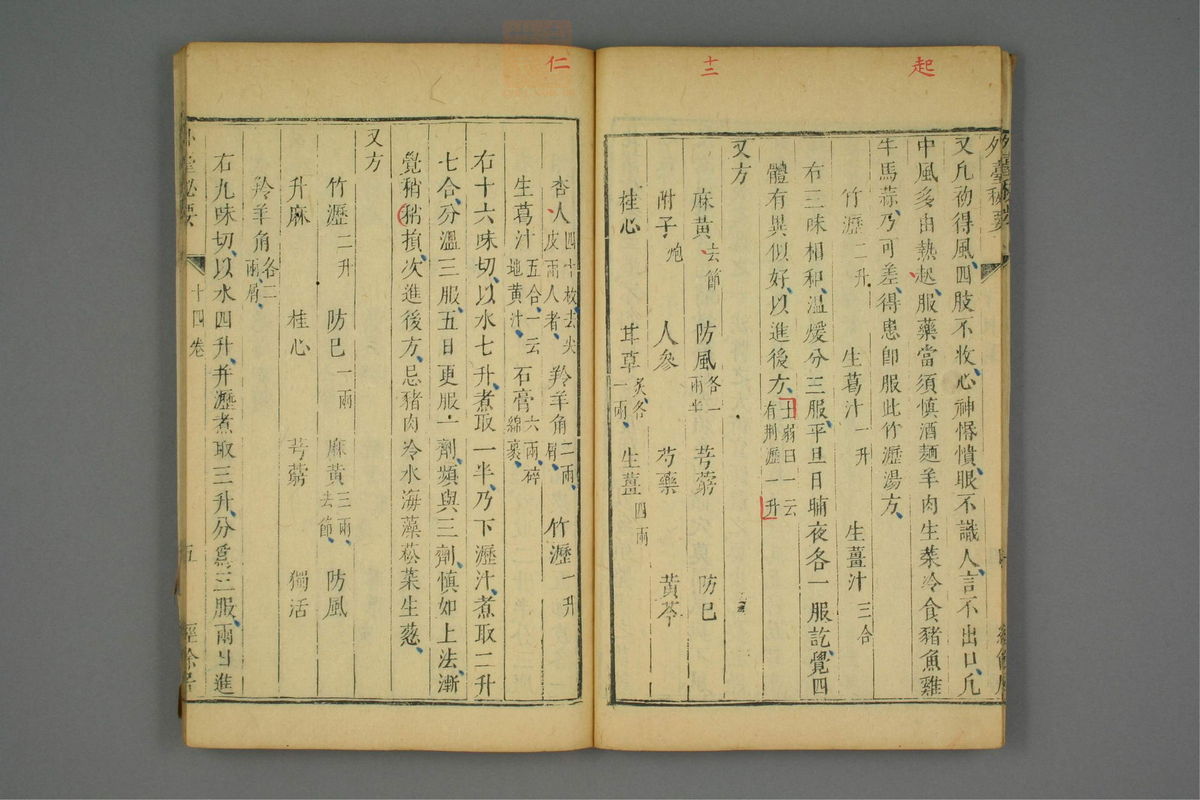 起
十二
仁
外臺秘要
又凡初得風四肢不收心神惛憒眼不識人言不出口凡
中風多由熱起服藥當須慎酒麵羊肉生菜冷食豬魚雞
牛馬蒜乃可差得患卽服此竹瀝湯方
竹瀝二升 生葛汁一升 生薑汁三合
右三味相和溫煖分三服平旦日晡夜各一服訖覺四
體有異似好以進後方 有荆瀝一升
又方
麻黃去節 防風各一兩半 芎藭 防巳
附子炮 人參 芍藥 黃芩
桂心 甘草炙各一兩 生薑四兩
杏人四十枚去尖皮兩人者 羚羊角二兩屑 竹瀝一升
生葛汁五合一云地黃汁 石膏六兩碎綿裹
右十六味切以水七升煮取一半乃下瀝汁煮取二升
七合分溫三服五日更服一劑頻與三劑慎如上法漸
覺稍稍損次進後方忌豬肉冷水海藻菘菜生葱
又方
竹瀝二升 防巳一兩 麻黃三兩去節 防風
升麻 桂心 芎藭 獨活
羚羊角各二兩屑
右九味切以水四升并瀝煮取三升分爲三服兩日進
外臺秘要 十四卷 五 經餘居